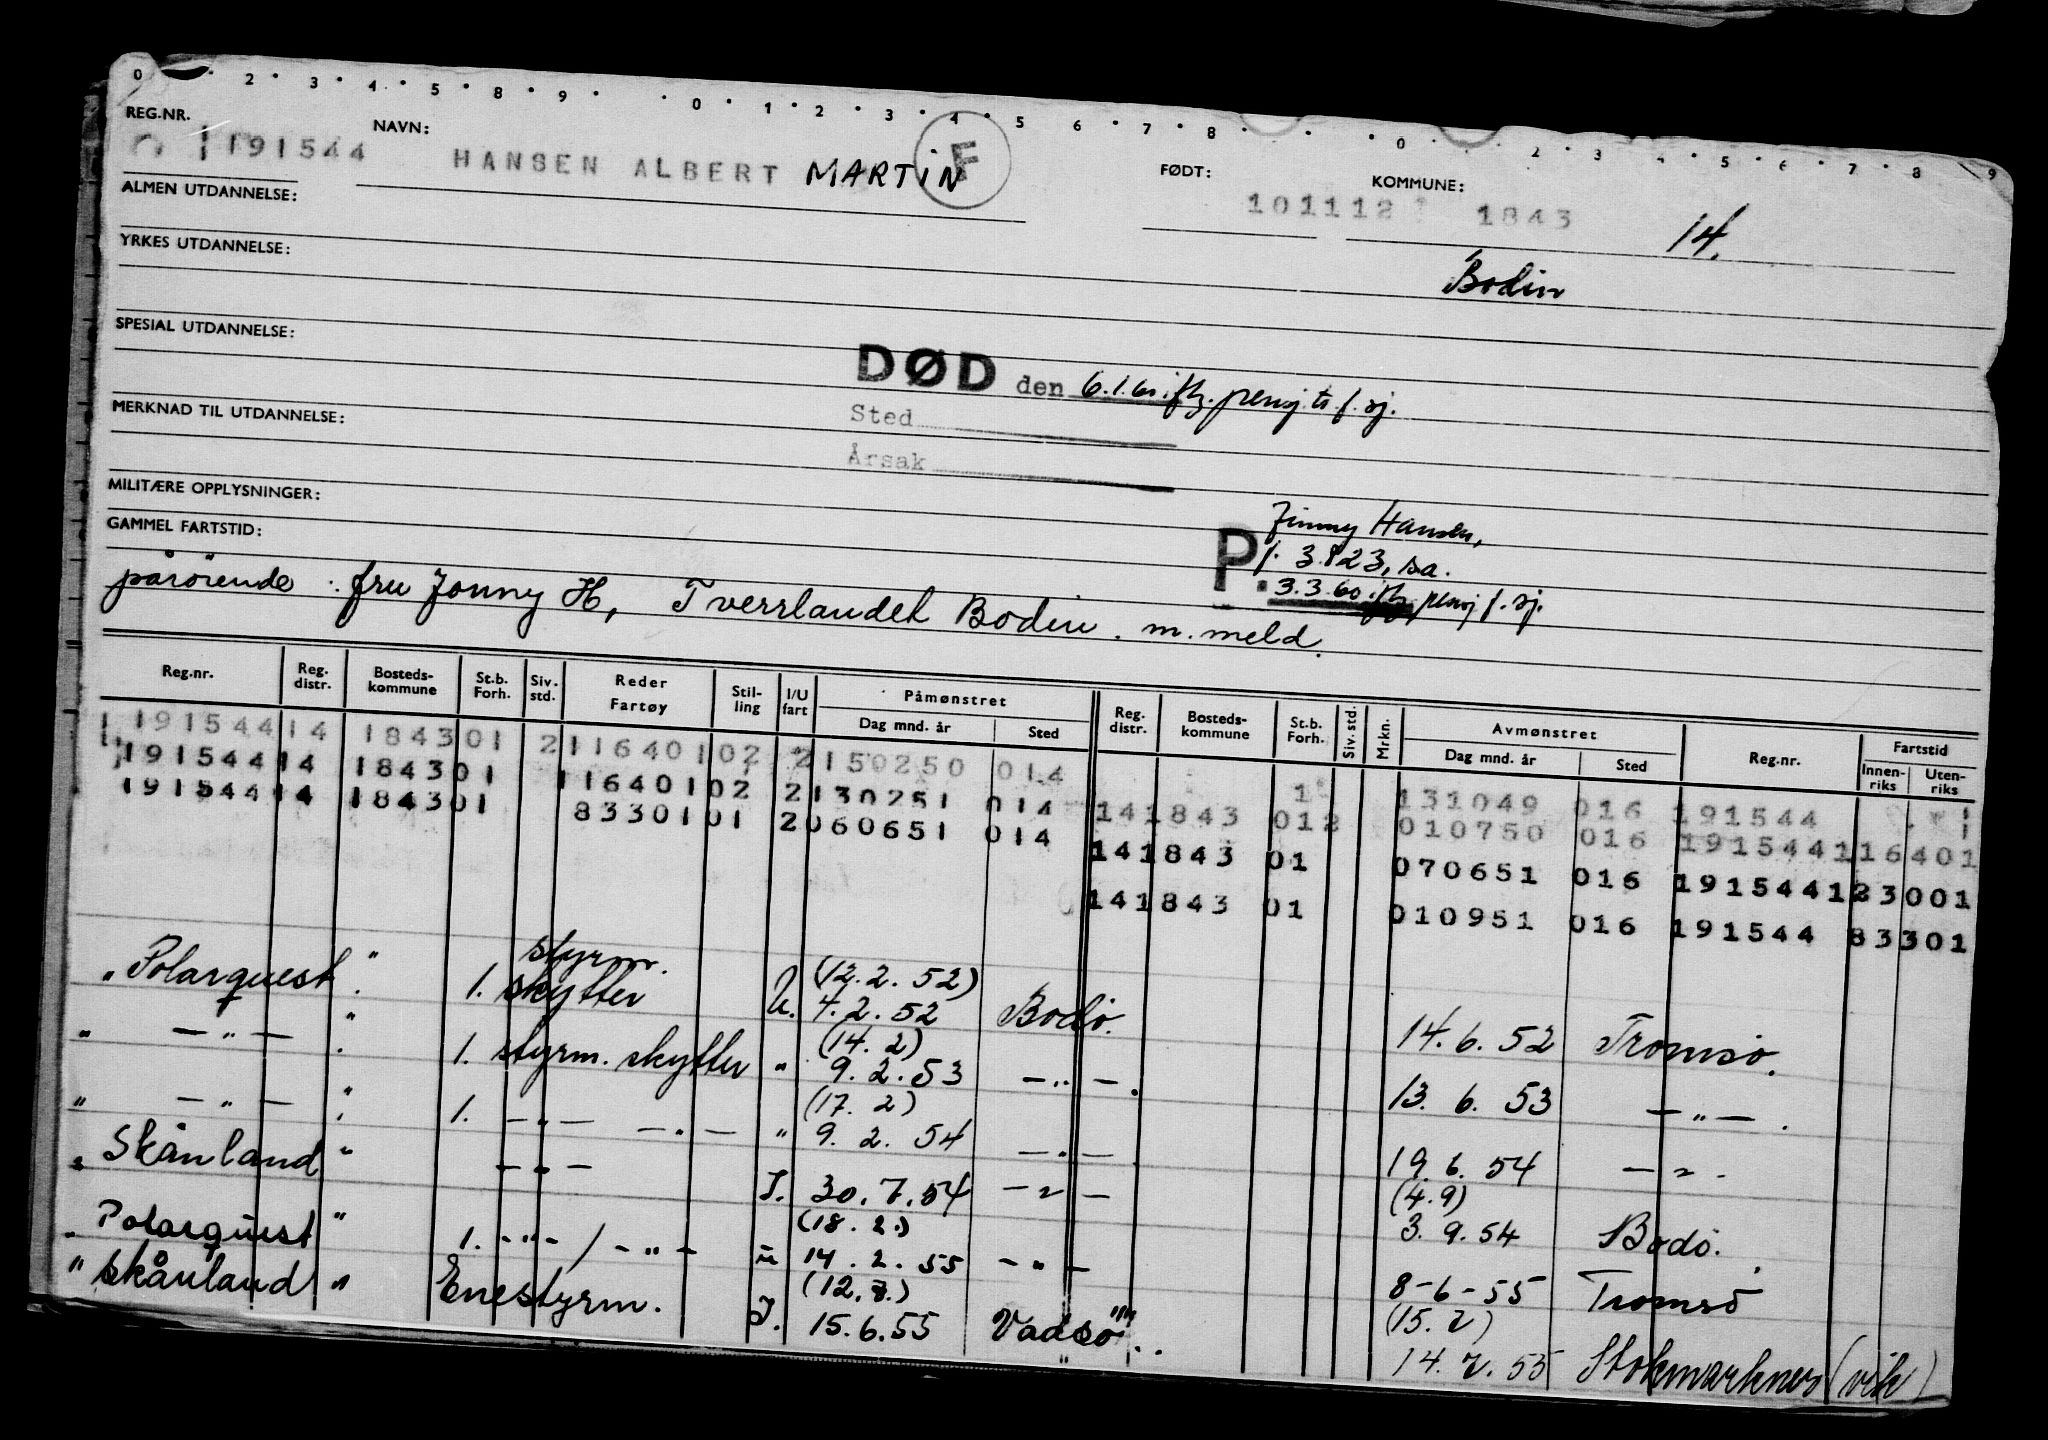 0 2 3 4 5 8 9 0 1 2 3 4 5 6 7 8 0 2 3 4 5 6 7 8 9
REG.NR. NAVN: F FØDT: KOMMUNE:
191544 HANSEN ALBERT MARTIN 101112 1843 14.
ALMEN UTDANNELSE:
Bodin
YRKES UTDANNELSE:
SPESIAL UTDANNELSE:
DØD den 6.1.60 ifl. pensj. tr. f. sj.
Sted
MERKNAD TIL UTDANNELSE:
Årsak
MILITÆRE OPPLYSNINGER:
Jinny Hansen,
GAMMEL FARTSTID:
P. f. 3.8 23, sa.
3.3.60 ifl. pensj f. sj.
pårörende : fru Jonny H, Tverrlandet Bodin. m. meld.
Reg.nr. Reg. distr. Bosteds-kommune St.b. Forh. Siv. std. Reder Fartøy Stil-ling I/U fart Påmønstret Dag mnd. år Sted Reg. distr. Bosteds-kommune St.b. Forh. Siv. std. Mrkn. Avmønstret Dag mnd. år Sted Reg.nr. Fartstid Innen-riks Uten-riks
191544 14 1843 01 2 116401 02 2 150250 014
191544 14 1843 01 116401 02 2 130251 014 131049 016 191544
191544 14 1843 01 83301 01 2 060651 014 14 1843 012 010750 016 191544 116401
14 1843 01 070651 016 191544 123001
14 1843 01 010951 016 191544 83301
styrm.
" Polarquest " 1. skytter U. (12.2.52)
4.2.52 Bodø. 14.6.52 Tromsø.
" — " — " 1. styrm. skytter " (14.2)
9.2.53 — " —. 13.6.53 — " — .
" — " — " 1. — " — — " — " (17.2)
9.2.54 — " — . 19.6.54 — " — .
" Skånland " — " — I. 30.7.54 — " — (4.9)
3.9.54 Bodö.
" Polarquest " 1. - " - / - " - u (18.2.)
14.2.55 — " — 8-6-55 Tromsö
" Skånland " Enestyrm. I. (12.7.)
15.6.55 Vadsö .. (15.7)
14.7.55 Stokmarknes (vik)